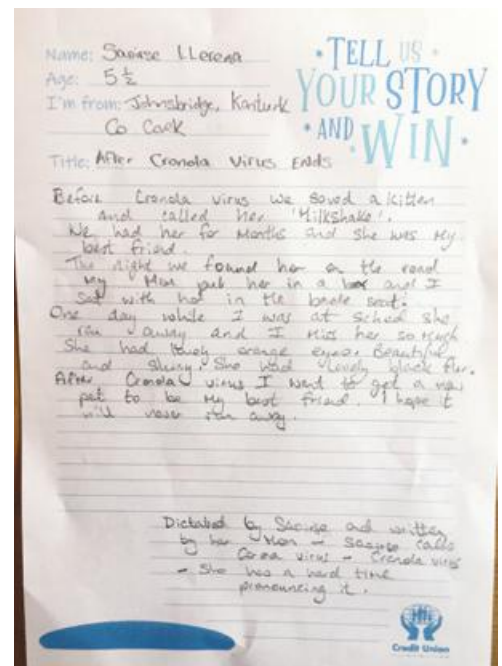 Name: Saoirse LLerena
Age: 5 ½
I'm from: Johnsbridge, Kanturk
Co Cork
TELL US
YOUR STORY
AND WIN
Title: After Cronola Virus Ends
Before Cronola virus we saved a kitten
and called her 'Milkshake'.
We had her for Months and she was My
best friend.
The night we found her on the road
My Mom put her in a box and I
Sat with her in the back seat.
One day while I was at school she
ran away and I Miss her so much
She had lovely orange eyes. Beautiful
and shiny. She had lovely black fur.
After Cronola virus I want to get a new
pet to be My best friend. I hope it
will never run away.
Dictated by Saoirse and written
by her Mom - Saoirse calls
Corona virus - Cronola virus
- She has a hard time
pronouncing it.
Credit Union